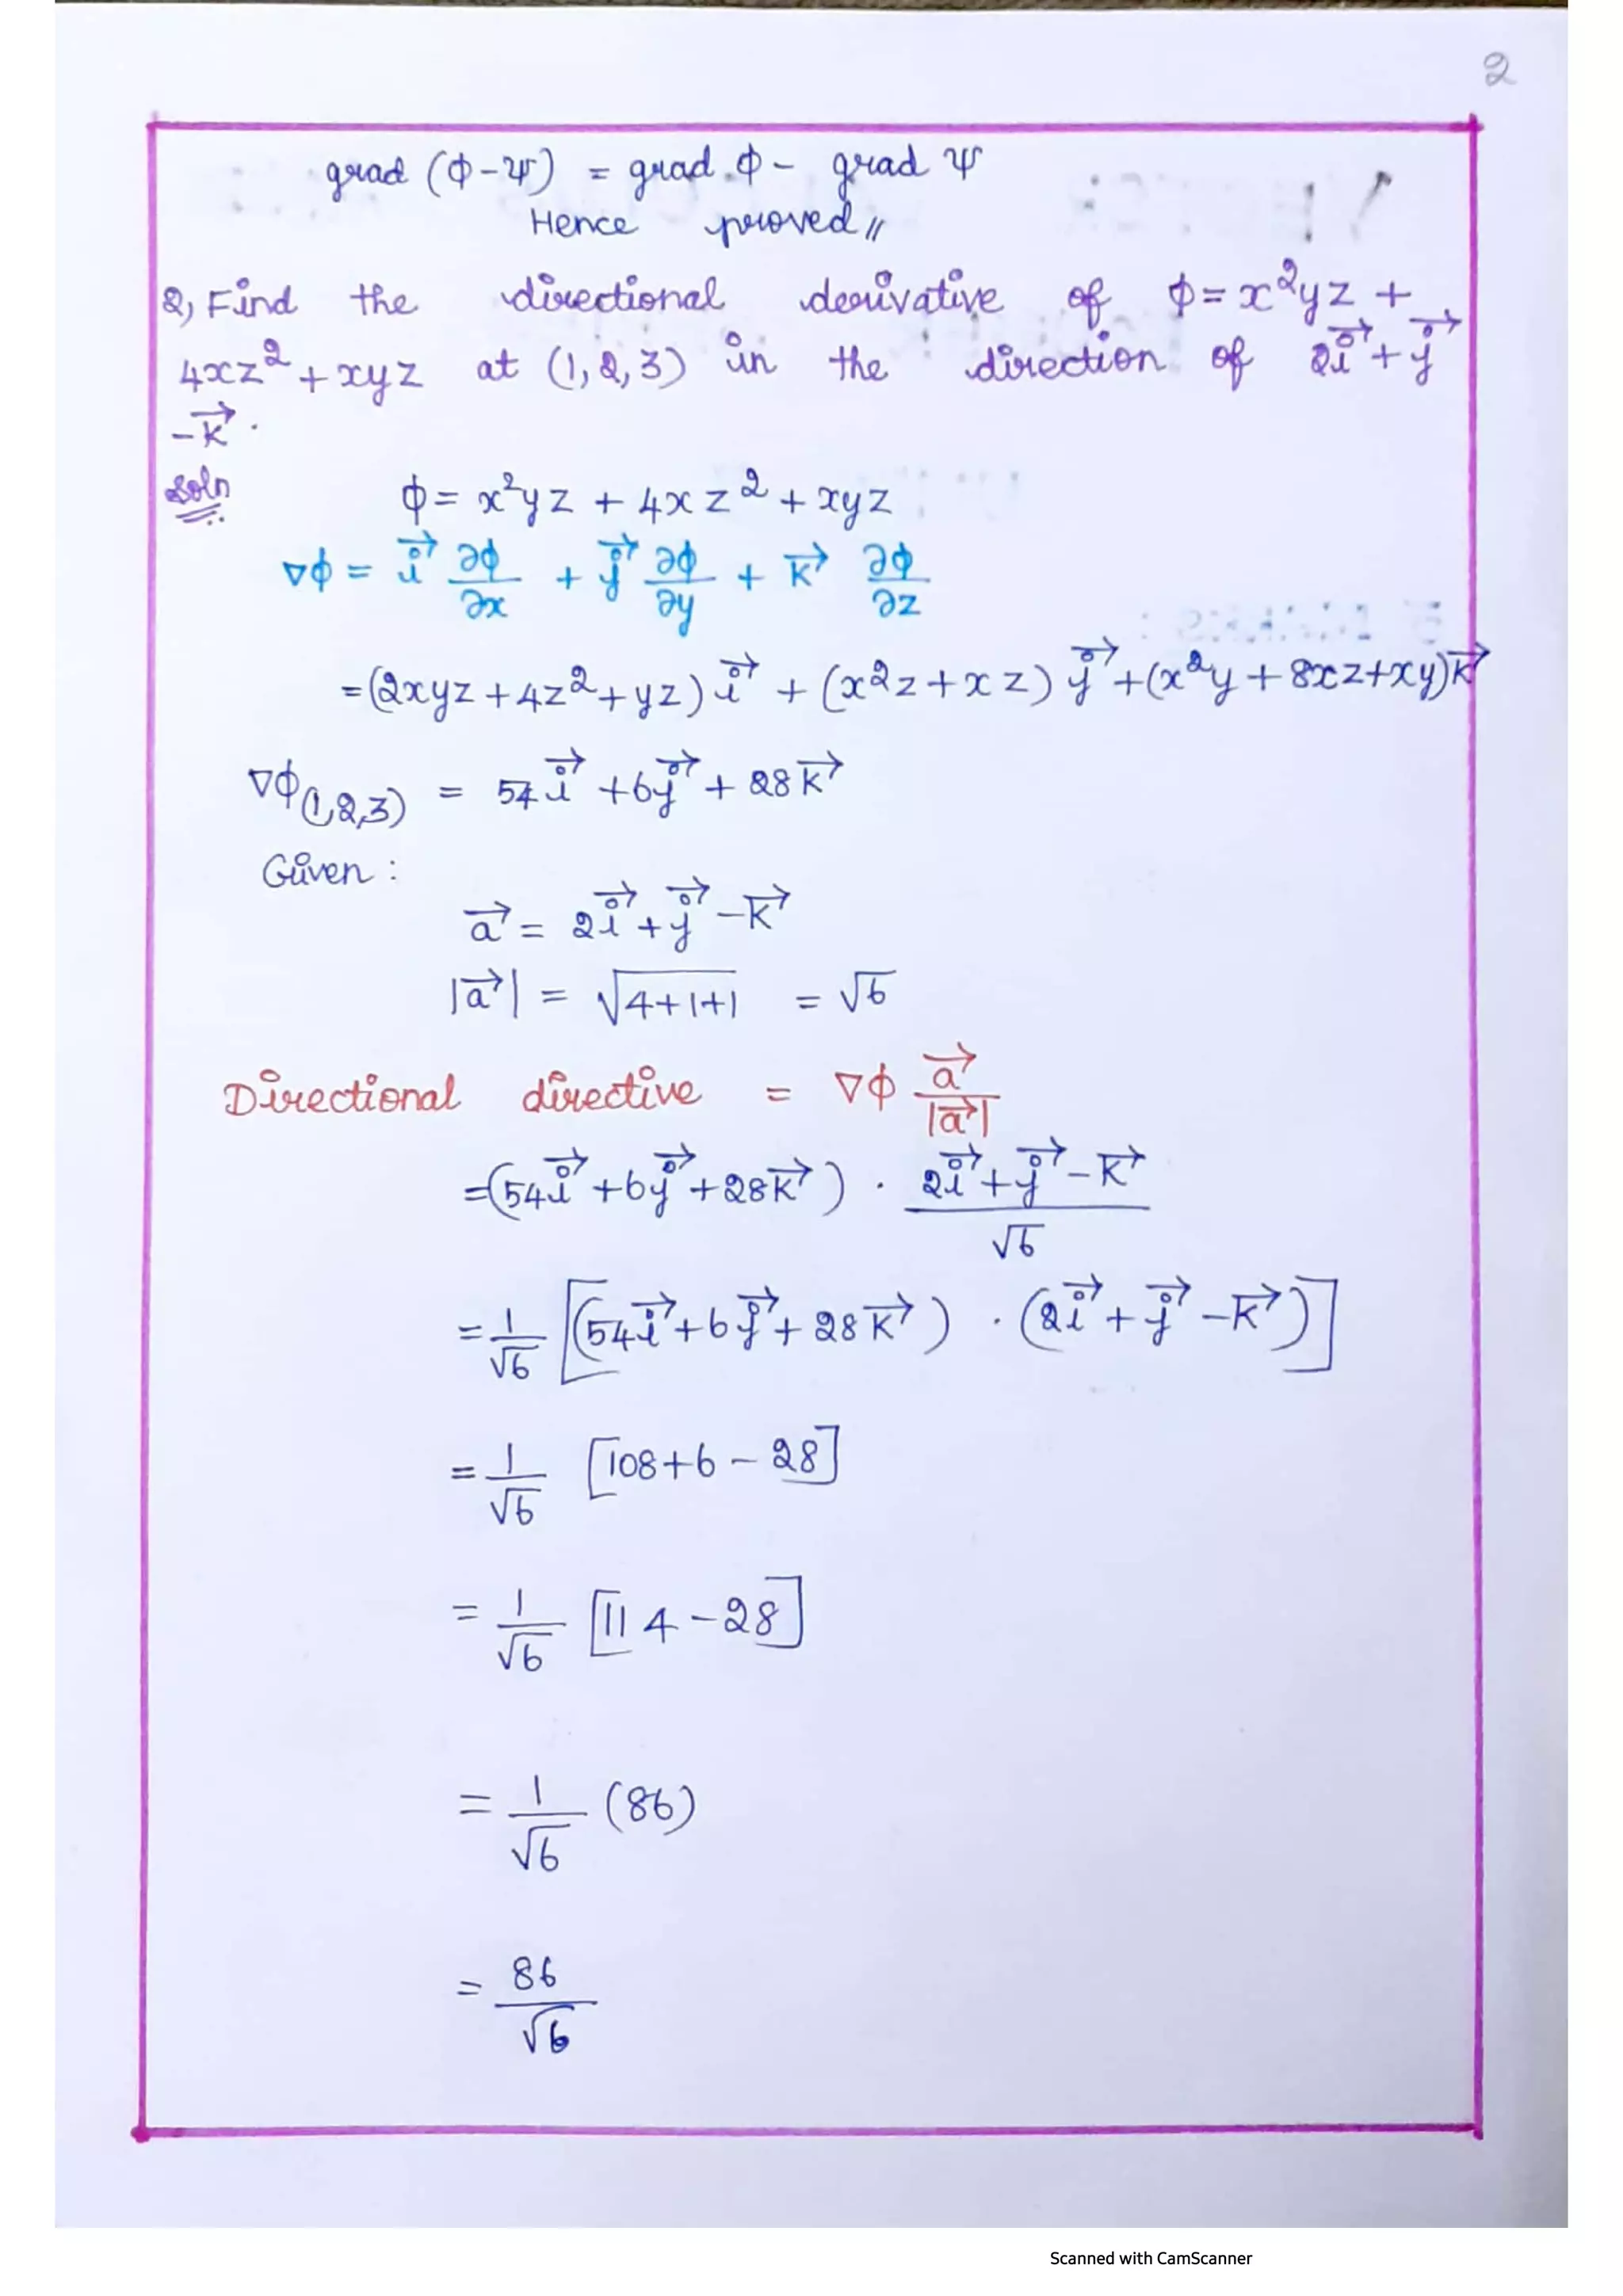 2
grad (ϕ-ψ) = grad.ϕ - grad ψ
Hence proved //
2, Find the directional derivative of ϕ = x²yz +
4xz² + xyz at (1,2,3) in the direction of 2i⃗ + j⃗
-k⃗.
Soln
ϕ = x²yz + 4xz² + xyz
∇ϕ = i⃗ ∂ϕ/∂x + j⃗ ∂ϕ/∂y + k⃗ ∂ϕ/∂z
= (2xyz + 4z² + yz) i⃗ + (x²z + xz) j⃗ + (x²y + 8xz + xy) k⃗
∇ϕ(1,2,3) = 54i⃗ + 6j⃗ + 28k⃗
Given :
a⃗ = 2i⃗ + j⃗ - k⃗
|a⃗| = √(4+1+1) = √6
Directional directive = ∇ϕ a⃗/|a⃗|
= (54i⃗ + 6j⃗ + 28k⃗) · (2i⃗ + j⃗ - k⃗)/√6
= 1/√6 [(54i⃗ + 6j⃗ + 28k⃗) · (2i⃗ + j⃗ - k⃗)]
= 1/√6 [108 + 6 - 28]
= 1/√6 [114 - 28]
= 1/√6 (86)
= 86/√6
Scanned with CamScanner